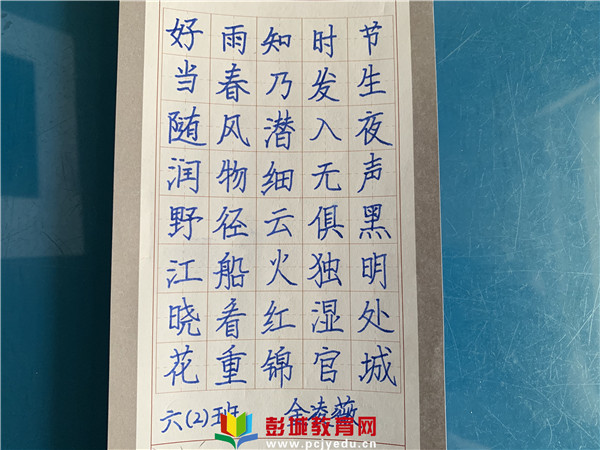 好雨知时节
当春乃发生
随风潜入夜
润物细无声
野径云俱黑
江船火独明
晓看红湿处
花重锦官城
六(2)班
彭城教育网
www.pcjyedu.cn